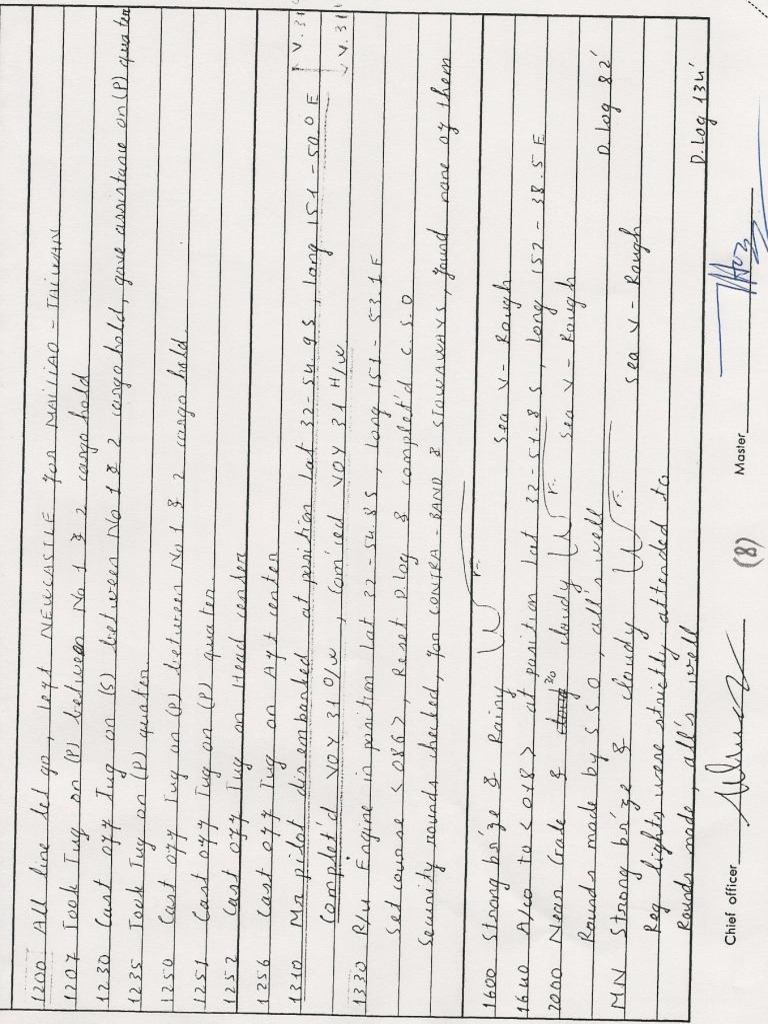 1200 All line let go, left NEWCASTLE for MAILIAO - TAIWAN
1207 Took Tug on (P) between No 1 & 2 cargo hold
1230 Cast off Tug on (S) between No 1 & 2 cargo hold, gave assistance on (P) quater
1235 Took Tug on (P) quater
1250 Cast off Tug on (P) between No 1 & 2 cargo hold.
1251 Cast off Tug on (P) quater.
1252 Cast off Tug on Head center
1256 Cast off Tug on Aft center
1310 Mr pilot disembarked at position lat 32-54.9 S, long 151-50.0 E
Complet'd VOY 31 O/W, Com'ced VOY 31 H/W
1330 R/u Engine in position lat 32-54.8 S, long 151-53.1 E
Set course <086>, Reset D.log & complet'd C.S.O
Security rounds checked, for CONTRA-BAND & STOWAWAYS, found none of them
1600 Strong br'ze & Rainy Sea V - Rough
D. Log 82'
1640 A/co to <018> at position lat 32-51.8 S, long 152-38.5 E
2000 Near Gale & cloudy Sea V - Rough
Rounds made by S.S.O, all's well
MN Strong br'ze & cloudy Sea V - Rough
D. Log 134'
Reg lights were strictly attended to
Rounds made, all's well
Chief officer (8) Master